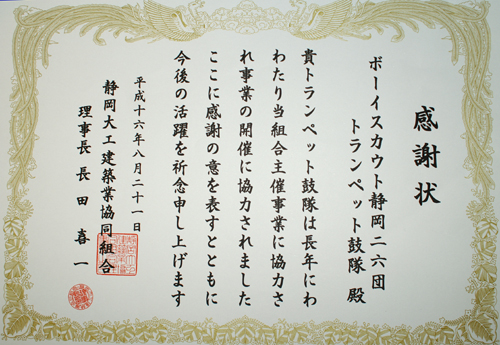 感謝状
ボーイスカウト静岡二六団
トランペット鼓隊 殿
貴トランペット鼓隊は長年にわ
わたり当組合主催事業に協力さ
れ事業の開催に協力されました
ここに感謝の意を表すとともに
今後の活躍を祈念申し上げます
平成十六年八月二十一日
静岡大工建築業協同組合
理事長 長田喜一